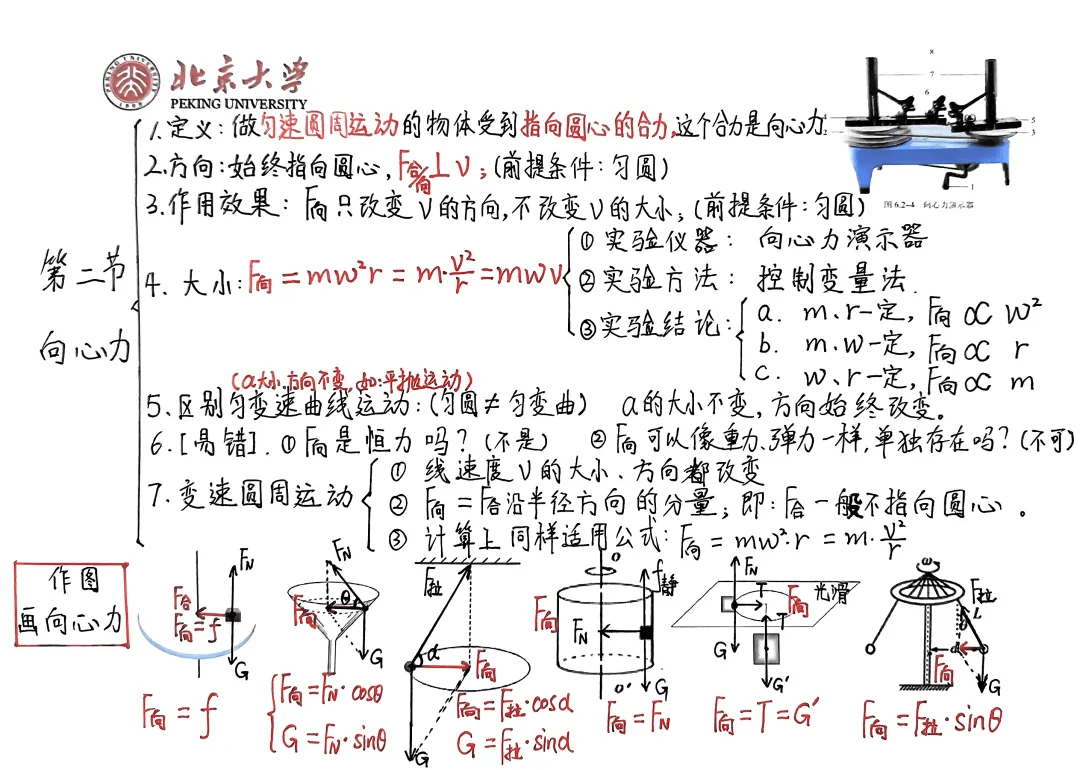 北京大学
PEKING UNIVERSITY
8
7
6
5
3
1
图 6.2-4 向心力演示器
第二节
向心力
1.定义:做匀速圆周运动的物体受到指向圆心的合力,这个合力是向心力.
2.方向:始终指向圆心,F合/向⊥v;(前提条件:匀圆)
3.作用效果:F向只改变v的方向,不改变v的大小;(前提条件:匀圆)
4、大小:F向=mw²r=m·v²/r=mwv
①实验仪器:向心力演示器
②实验方法:控制变量法.
③实验结论:
a. m、r一定,F向∝w²
b. m、w一定,F向∝r
c. w、r一定,F向∝m
(a大小、方向不变,如:平抛运动)
5.区别匀变速曲线运动:(匀圆≠匀变曲) a的大小不变,方向始终改变。
6.[易错].①F向是恒力吗?(不是) ②F向可以像重力、弹力一样,单独存在吗?(不可)
7.变速圆周运动
①线速度v的大小、方向都改变
②F向=F合沿半径方向的分量;即:F合一般不指向圆心。
③计算上同样适用公式:F向=mw²·r=m·v²/r
作图
画向心力
FN
F合
F向=f
G
F向=f
FN
F向
θ
G
F向=FN·cosθ
G=FN·sinθ
F拉
α
F向
G
F向=F拉·cosα
G=F拉·sinα
O
f静
F向
FN
O'
G
F向=FN
FN
T
F向
光滑
T
G
G'
F向=T=G'
w
F拉
L
θ
d
F向
G
F向=F拉·sinθ